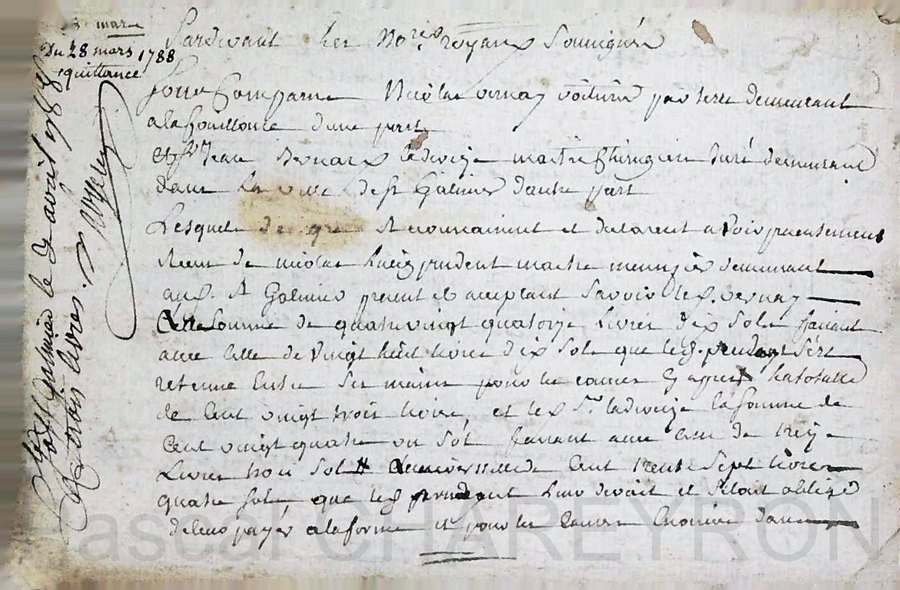 mars
Du 28 mars 1788
quittance
Pardevant les No.res royaux Soussignés
Sont Comparus Nicolas vernay voiturier par terre demeurant
a la fouillouse d'une part
et S.r Jean ladevèze maitre Chirurgien Juré demeurant
dans la ville de S.t Galmier d'autre part
Lesquels de gré reconnaissent et declarent avoir presentement
Receu de nicolas prudent maitre demeurant
aud. St Galmier present et acceptant Savoir led. vernay
Celle Somme de quatrevingt quatorze Livres dix Sols faisant
avec celle de vingt huit livres dix Sols que led. prudent S'est
retenue entre Ses mains pour les causes cy apres la totalle
de Cent vingt trois livres et led. S.r ladeveze la somme de
Cent vingt quatre un Sol faisant avec celle de treize
Livres trois Sols de Cent trente Sept livres
quatre Sols que led prudent leur devoit et s'etoit obligé
de leur payer a la forme et pour les causes
St Galmier le 9 avril 1788
trois livres
Pascal CHAREYRON